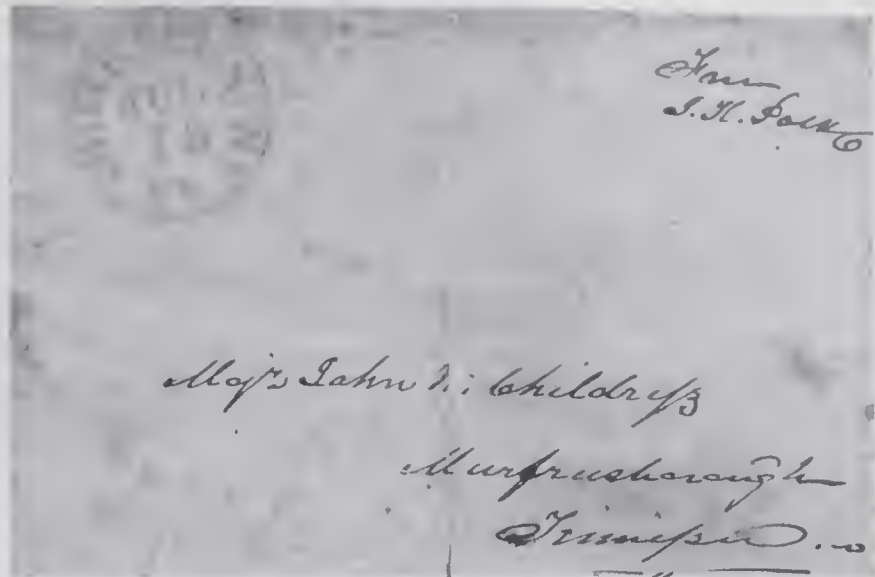 From
J. K. Polk
Majr. John W. Childress
Murfreesborough
Tennessee